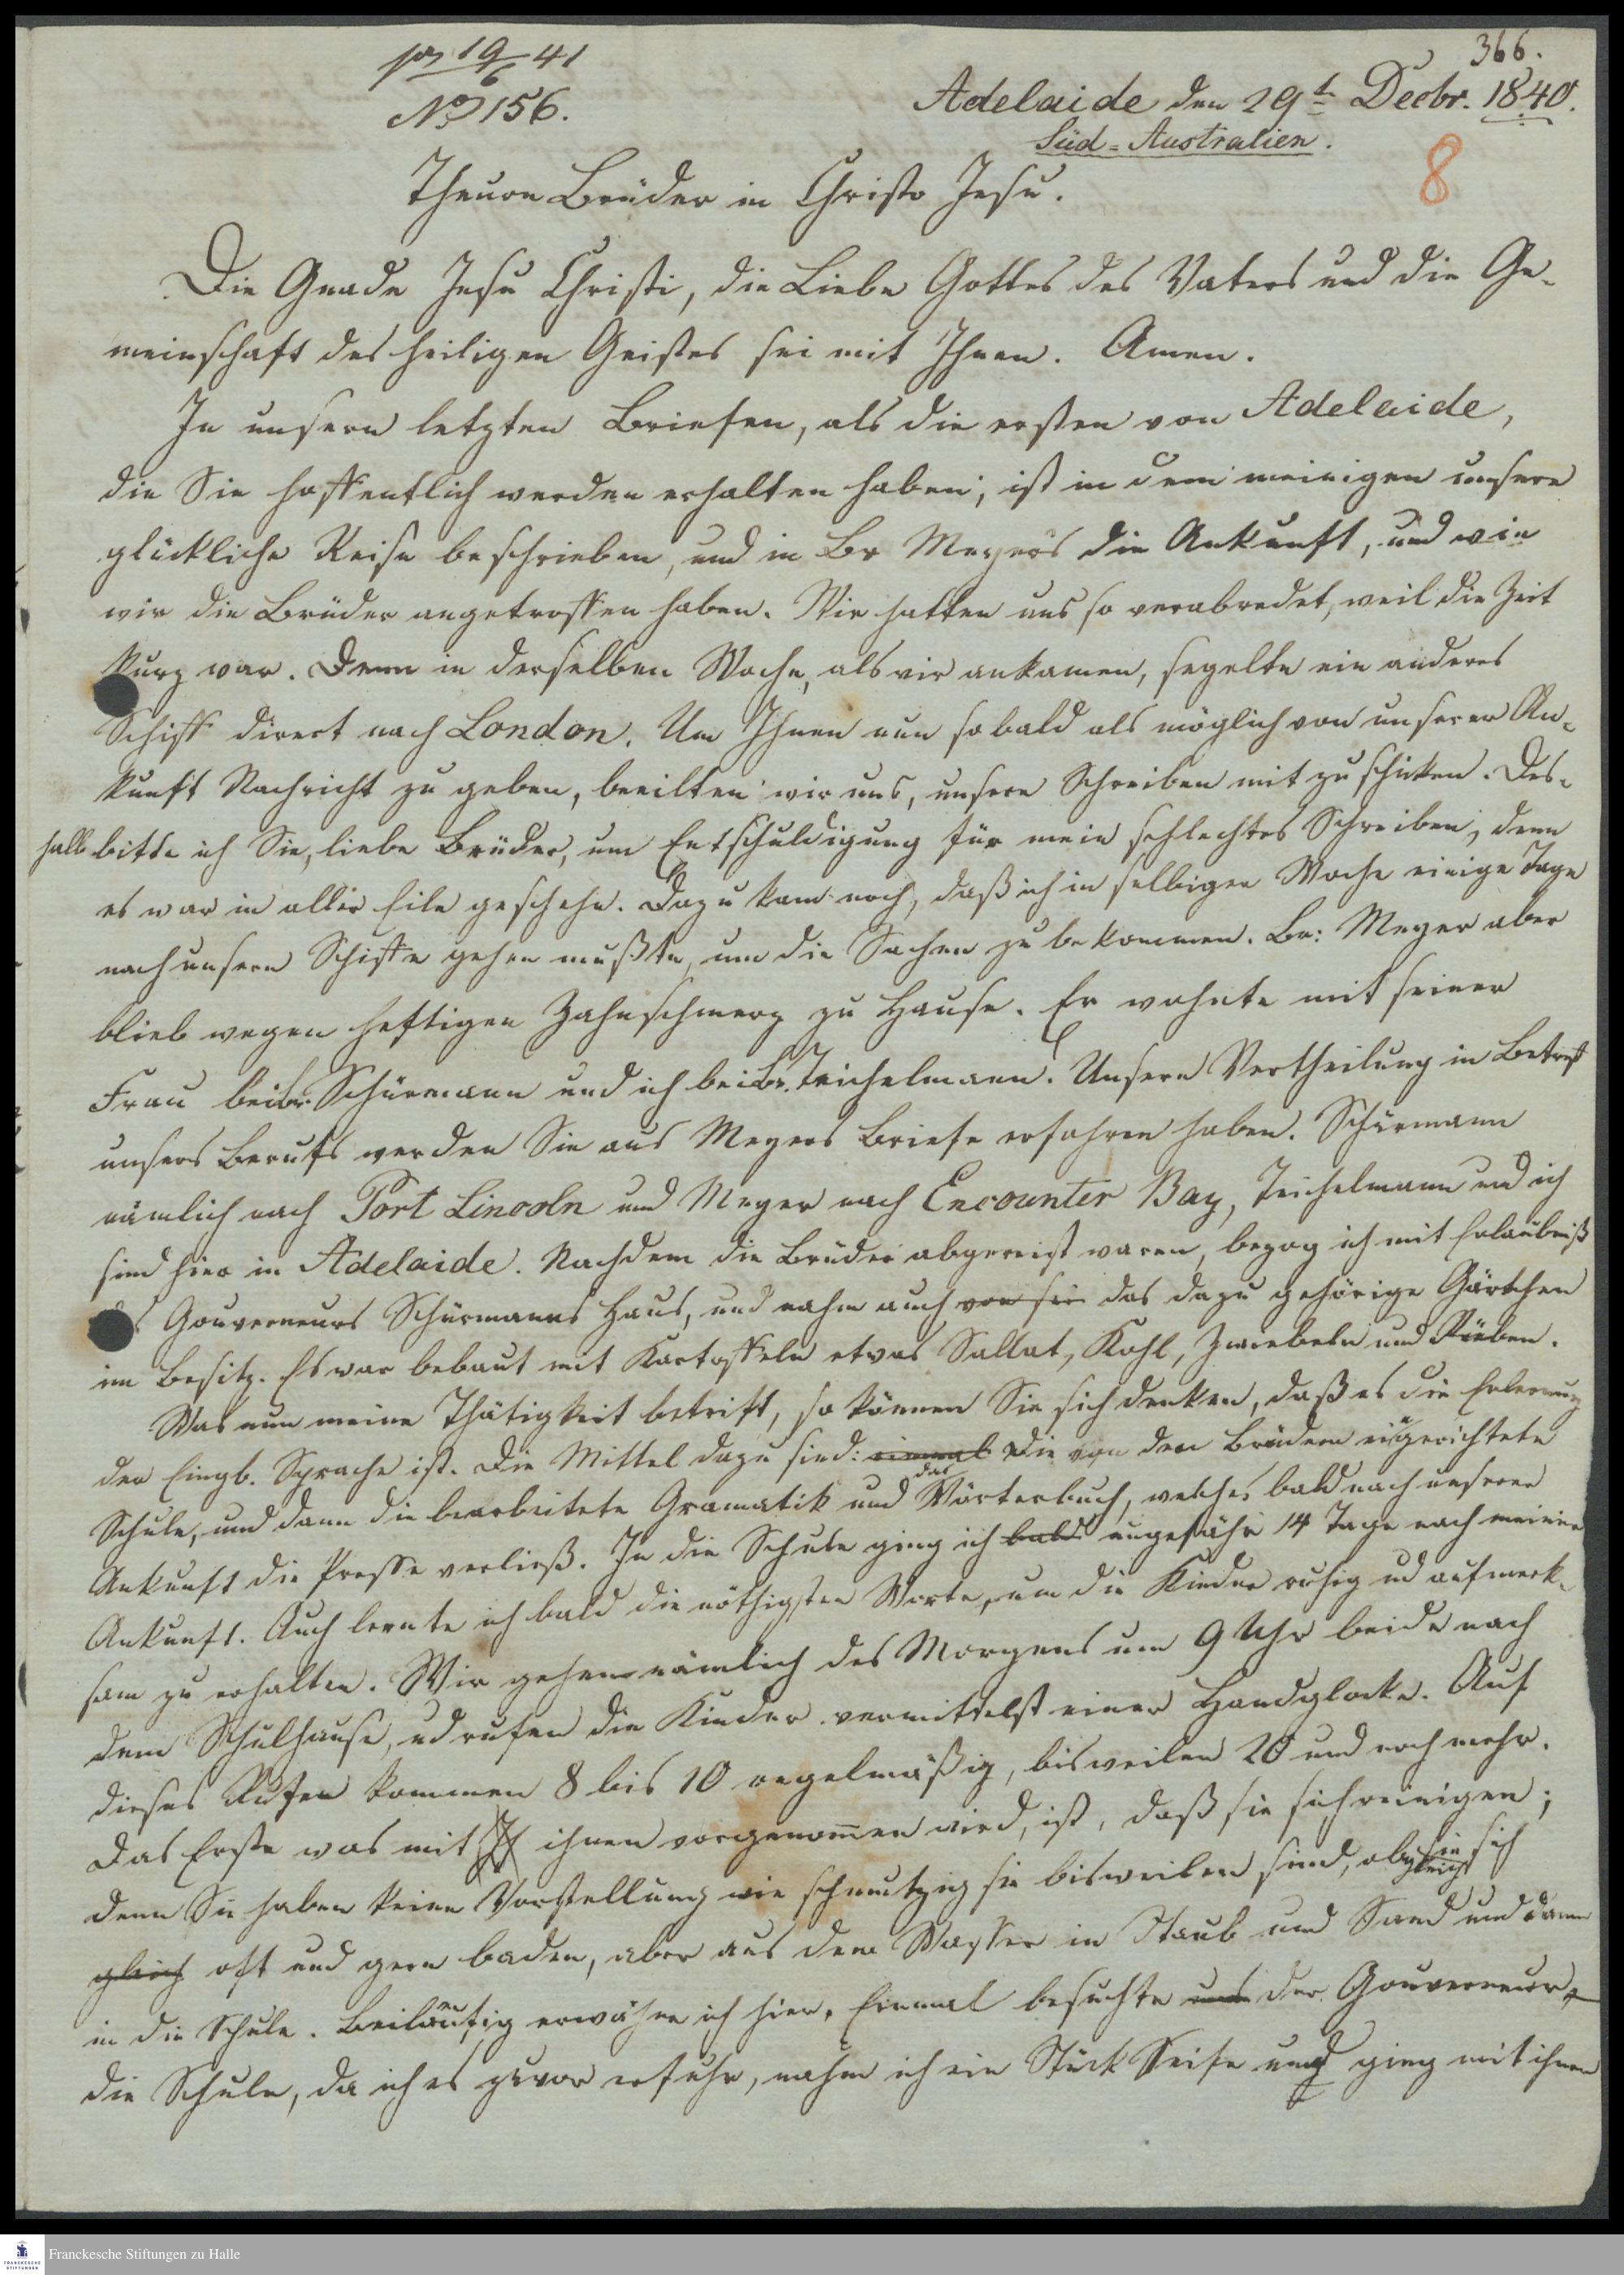 366.
pr 19/6 41
No 156.
Adelaide den 29t Decbr. 1840.
Süd-Australien.
8
Theure Brüder in Christo Jesu.
Die Gnade Jesu Christi, die Liebe Gottes des Vaters und die Ge-
meinschaft des heiligen Geistes sei mit Ihnen. Amen.
In unsern letzten Briefen, als die ersten von Adelaide,
die Sie hoffentlich werden erhalten haben, ist in dem meinigen unsere
glückliche Reise beschrieben, und in Br Meyers die Ankunft, und wie
wir die Brüder angetroffen haben. Wir hatten uns so verabredet, weil die Zeit
kurz war. Denn in derselben Woche, als wir ankamen, segelte ein anderes
Schiff direct nach London. Um Ihnen nun sobald als möglich von unserer An-
kunft Nachricht zu geben, beeilten wir uns, unsere Schreiben mit zu schicken. Des-
halb bitte ich Sie, liebe Brüder, um Entschuldigung für mein schlechtes Schreiben, denn
es war in aller Eile geschehn. Dazu kam noch, daß ich in selbiger Woche einige Tage
nach unserm Schiffe gehen mußte, um die Sachen zu bekommen. Br: Meyer aber
blieb wegen heftigen Zahnschmerz zu Hause. Er wohnte mit seiner
Frau bei Br. Schürmann und ich bei Br. Teichelmann. Unsere Vertheilung in Betreff
unsers Berufs werden Sie aus Meyers Briefe erfahren haben. Schürmann
nämlich nach Port Lincoln und Meyer nach Encounter Bay, Teichelmann und ich
sind hier in Adelaide. Nachdem die Brüder abgereist waren, bezog ich mit Erlaubniß
des Gouverneurs Schürmanns Haus, und nahm auch von sei das dazu gehörige Gärtchen
im Besitz. Es war bebaut mit Kartoffeln etwas Sallat, Kohl, Zwiebeln und Rüben.
Was nun meine Thätigkeit betrift, so können Sie sich denken, daß es die Erlernung
der Eingb. Sprache ist. Die Mittel dazu sind: einmal die von den Brüdern eingerichtete
Schule, und dann die bearbeitete Gramatik und das Wörterbuch, welches bald nach unserer
Ankunft die Presse verließ. In die Schule ging ich bald ungefähr 14 Tage nach meiner
Ankunft. Auch lernte ich bald die nöthigsten Worte, um die Kinder ruhig ud aufmerk-
sam zu erhalten. Wir gehen nämlich des Morgens um 9 Uhr beide nach
dem Schulhause, ud rufen die Kinder vermittelst einer Handglocke. Auf
dieses Rufen kommen 8 bis 10 regelmäßig, bisweilen 20 und noch mehr.
Das Erste was mit ihnen vorgenommen wird, ist, daß sie sich reinigen;
denn Sie haben keine Vorstellung wie schmutzig sie bisweilen sind, obgleich sie sich
gleich oft und gern baden, aber aus dem Wasser in Staub und Sand und dann
in die Schule. Beiläufig erwähne ich hier, Einmal besuchte uns der Gouverneur
die Schule, da ich es zuvor erfuhr, nahm ich ein Stück Seife und ging mit ihnen
FRANCKESCHE STIFTUNGEN
Franckesche Stiftungen zu Halle